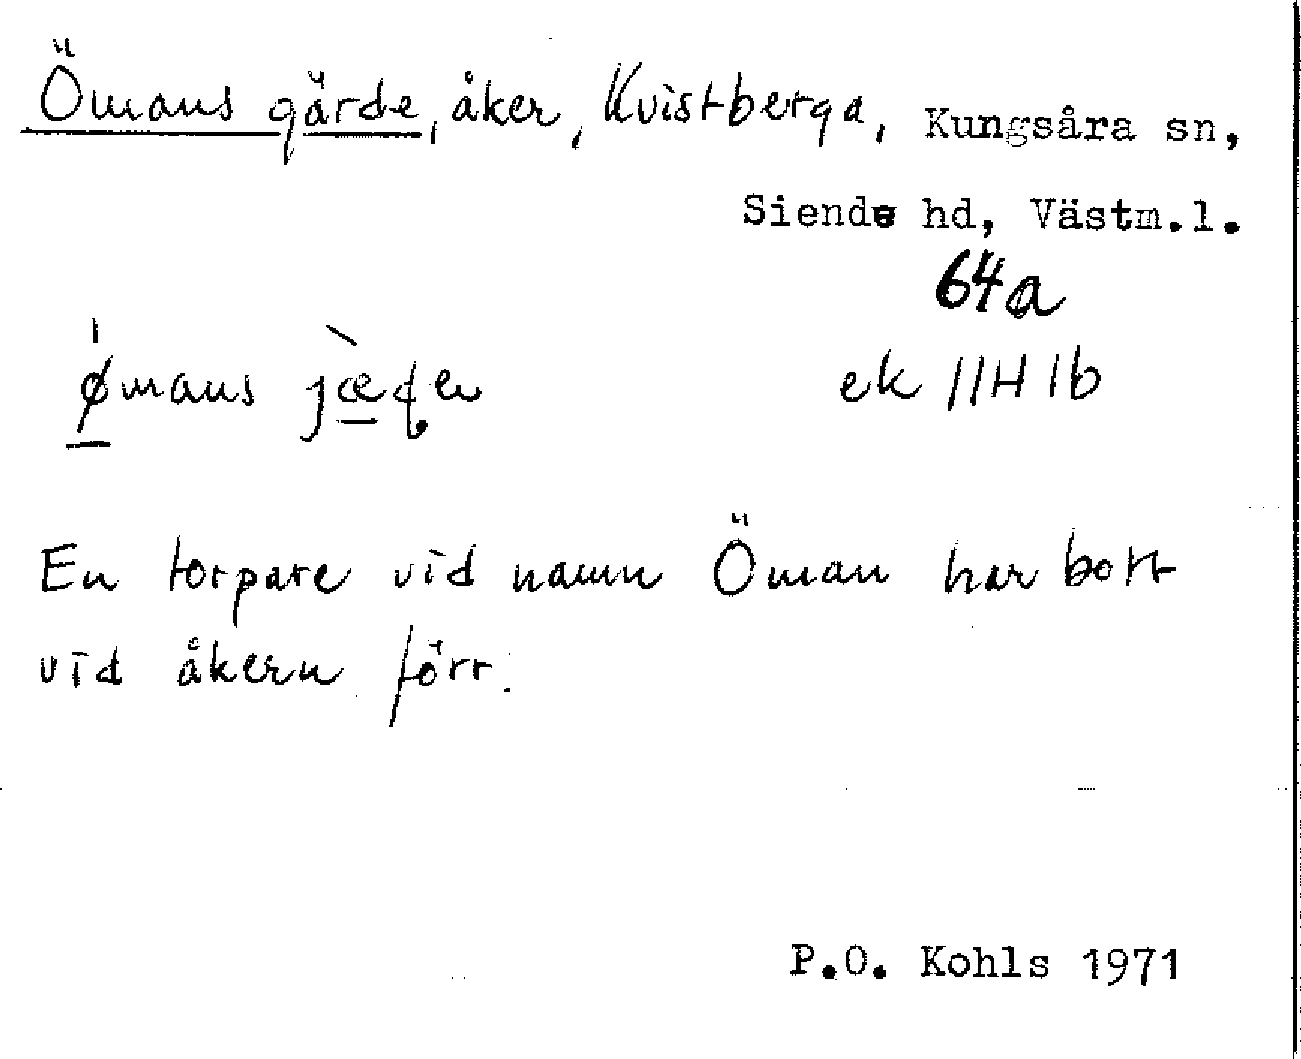 Ömans gärde, åker, Kvistberga, Kungsåra sn,
Siende hd, Västm.l.
64a
ømans
ek 11H 1b
En torpare vid namn Öman har bott
vid åkern förr.
P.O. Kohls 1971